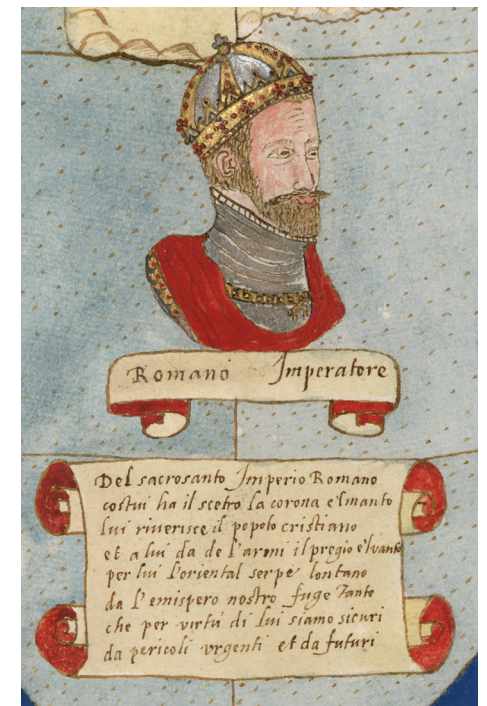 Romano Imperatore
Del sacrosanto Imperio Romano
costui ha il scetro la corona e'lmanto
lui riverisce il popolo cristiano
et a lui da de l'armi il pregio e'lvanto
per lui l'oriental serpe lontano
da l'emispero nostro fuge tanto
che per virtú di lui siamo sicuri
da pericoli vrgenti et da futuri